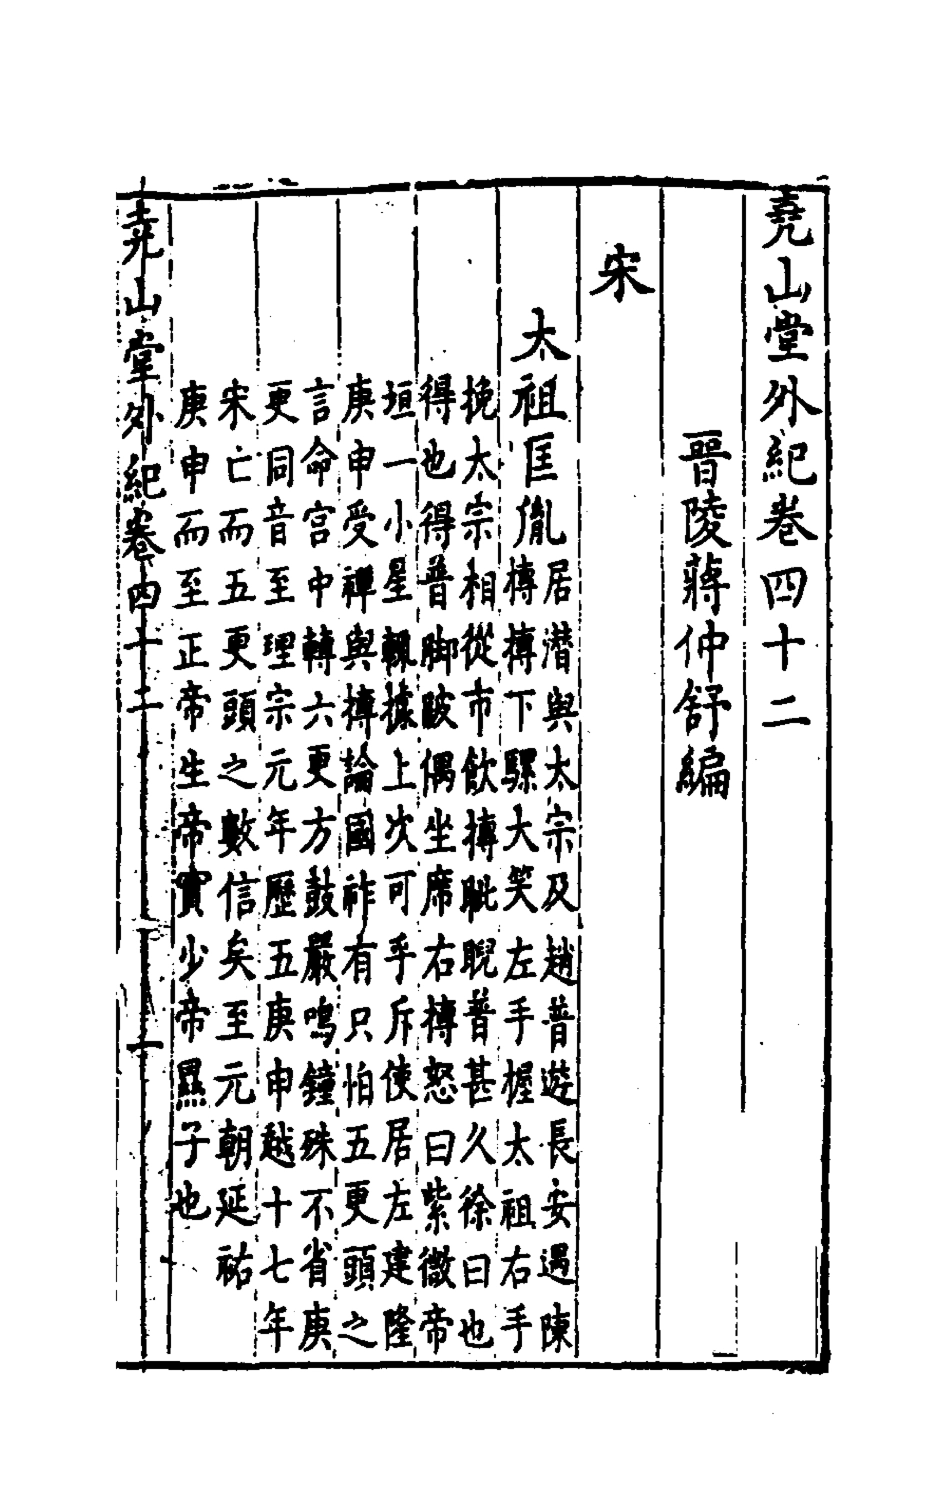 堯山堂外紀卷四十二
晉陵蔣仲舒編
宋
太祖匡胤
居潛與太宗及趙普遊長安遇陳
摶摶下騾大笑左手握太祖右手
挽太宗相從市飲摶眦睨普甚久徐曰也
得也得普脚跛偶坐席右摶怒曰紫微帝
垣一小星輒據上次可乎斥使居左建隆
庚申受禪與摶論國祚有只怕五更頭之
言命宮中轉六更方鼓嚴鳴鐘殊不省庚
更同音至理宗元年歷五庚申越十七年
宋亡而五更頭之數信矣至元朝延祐
庚申而至正帝生帝實少帝㬎子也
堯山堂外紀卷四十二
一